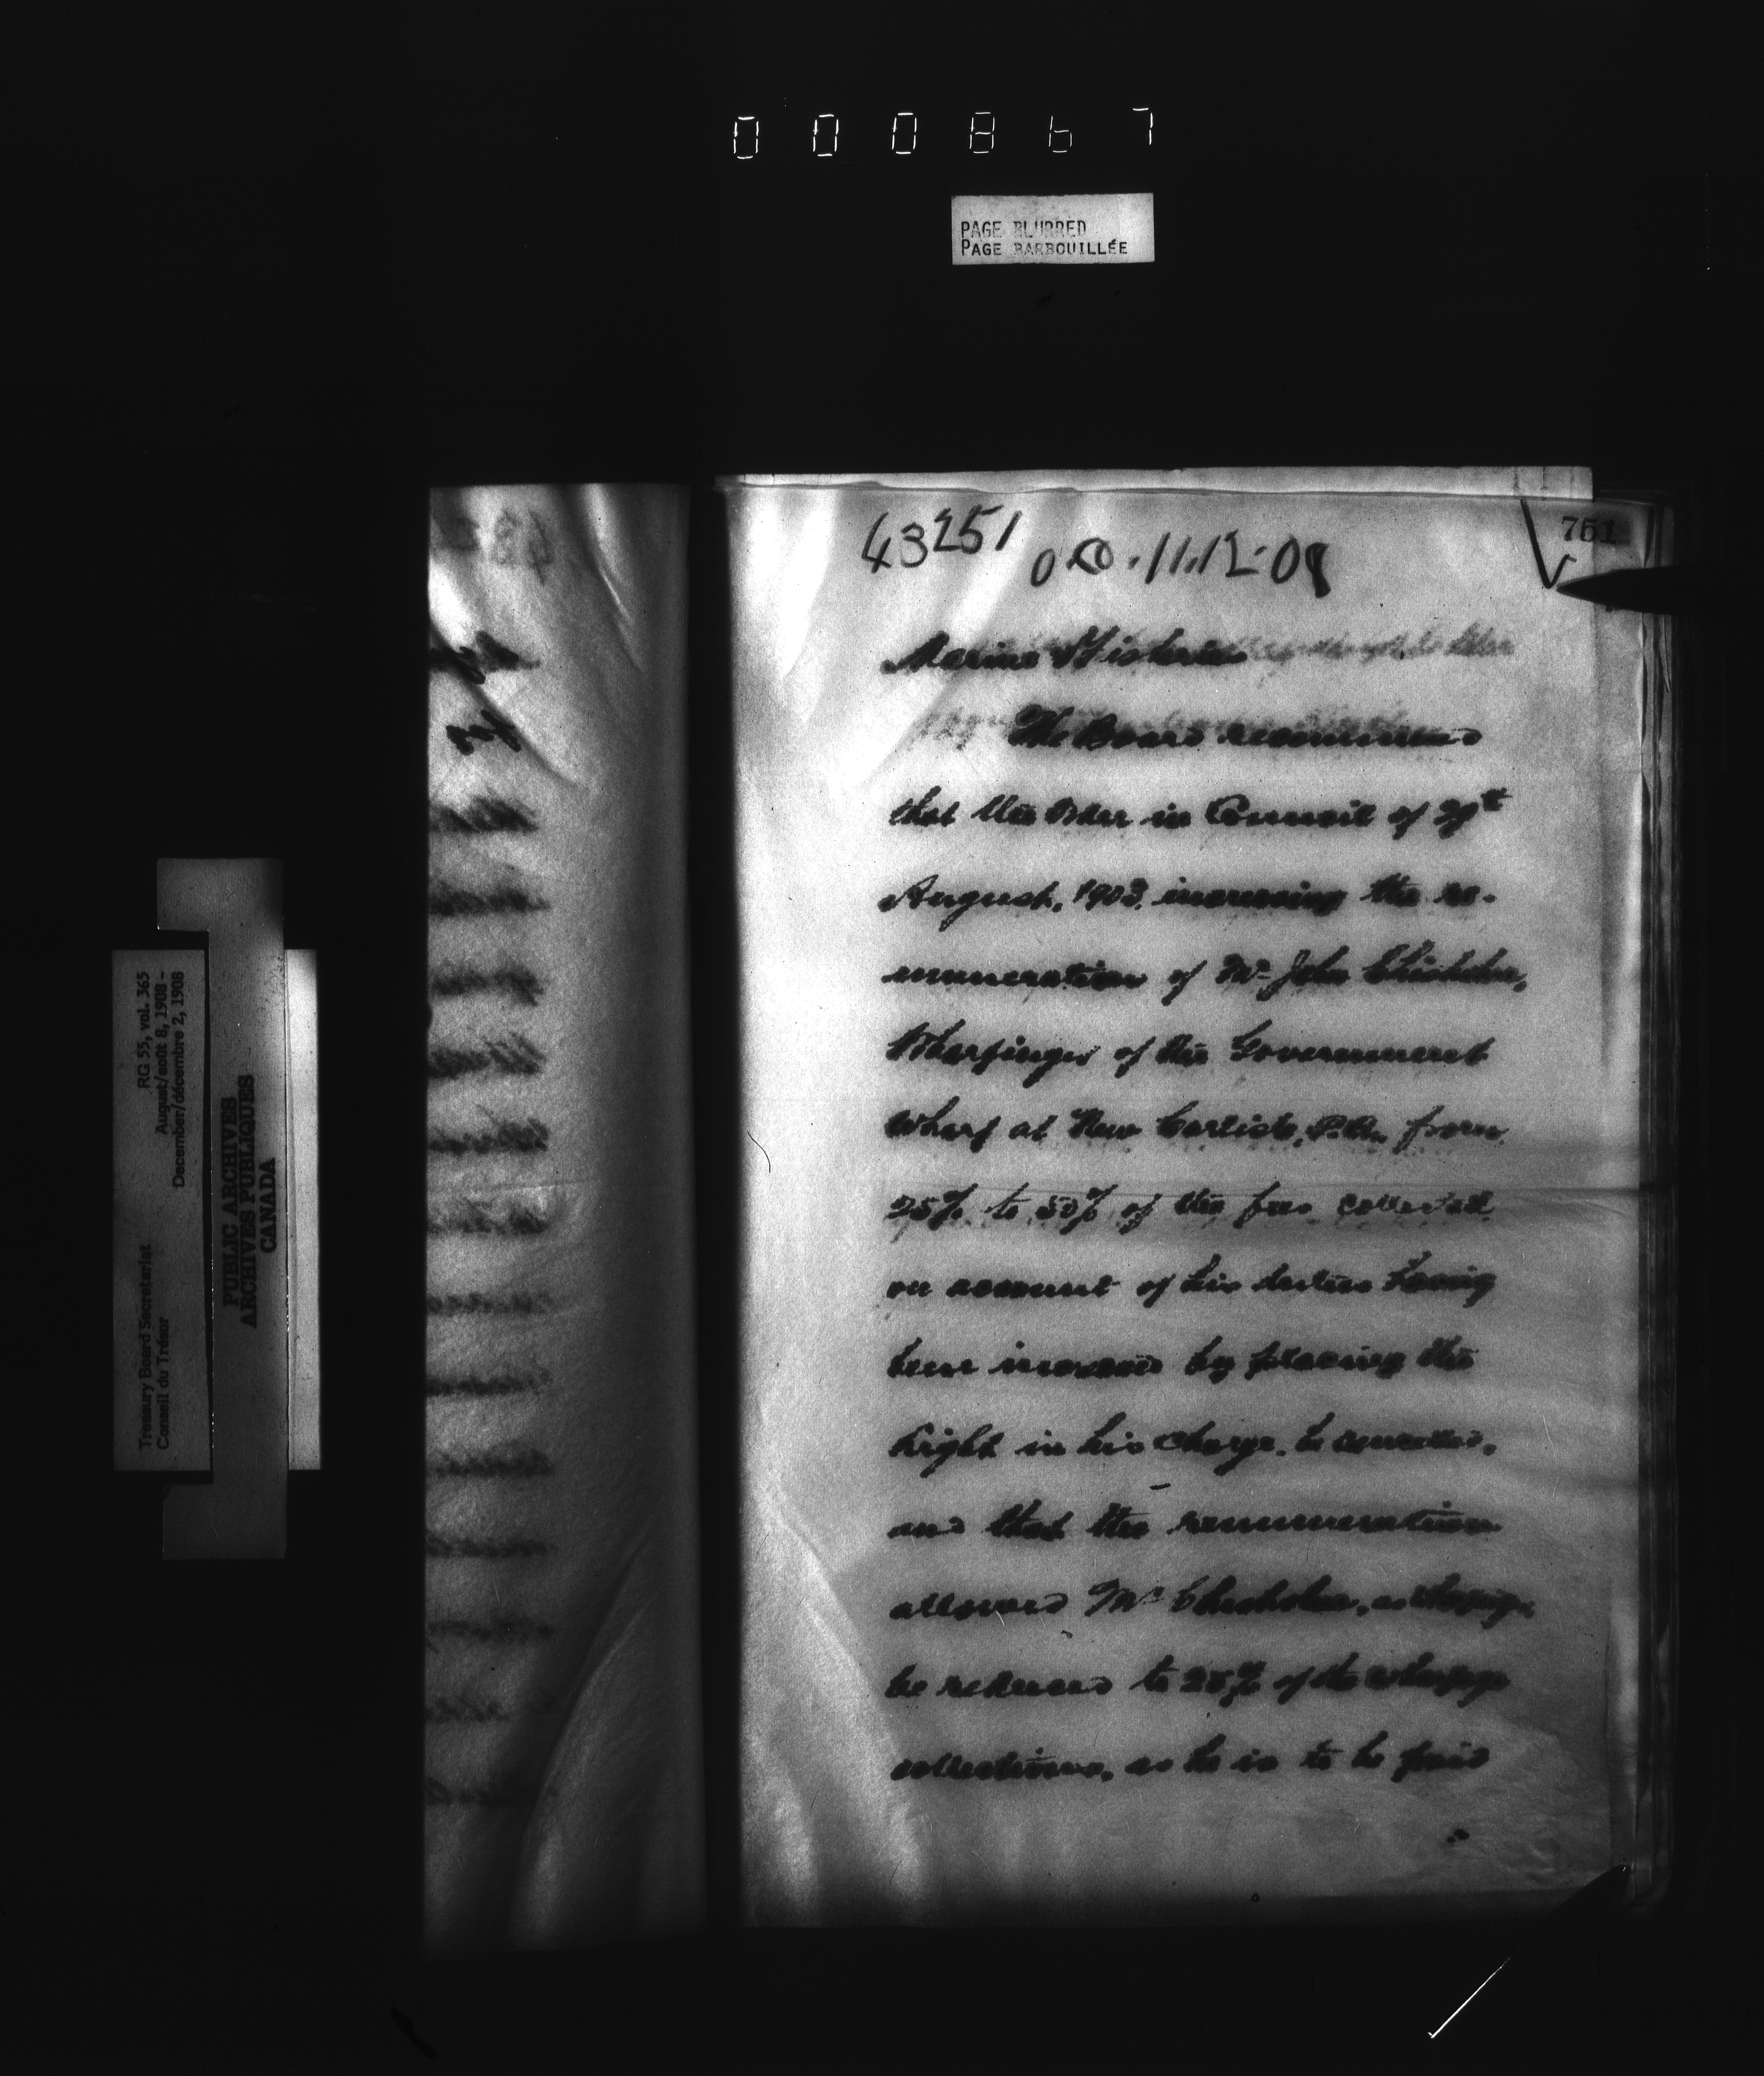 000867
PAGE BLURRED
PAGE BARBOUILLÉE
RG 55, vol. 365
August/août 8, 1908 -
December/décembre 2, 1908
Treasury Board Secretariat
Conseil du Trésor
PUBLIC ARCHIVES
ARCHIVES PUBLIQUES
CANADA
751
43251
Marine & Fisheries
The Board recommend
that the Order in Council of 29th
August, 1903, increasing the re-
muneration of Mr John Chisholm,
Wharfinger of the Government
Wharf at New Carlisle, P.Q., from
25% to 50% of the fees collected
on account of his duties having
been increased by placing the
Light in his charge, be cancelled,
and that the remuneration
allowed Mr Chisholm, as Wharfinger
be reduced to 25% of the wharfage
collections, as he is to be paid